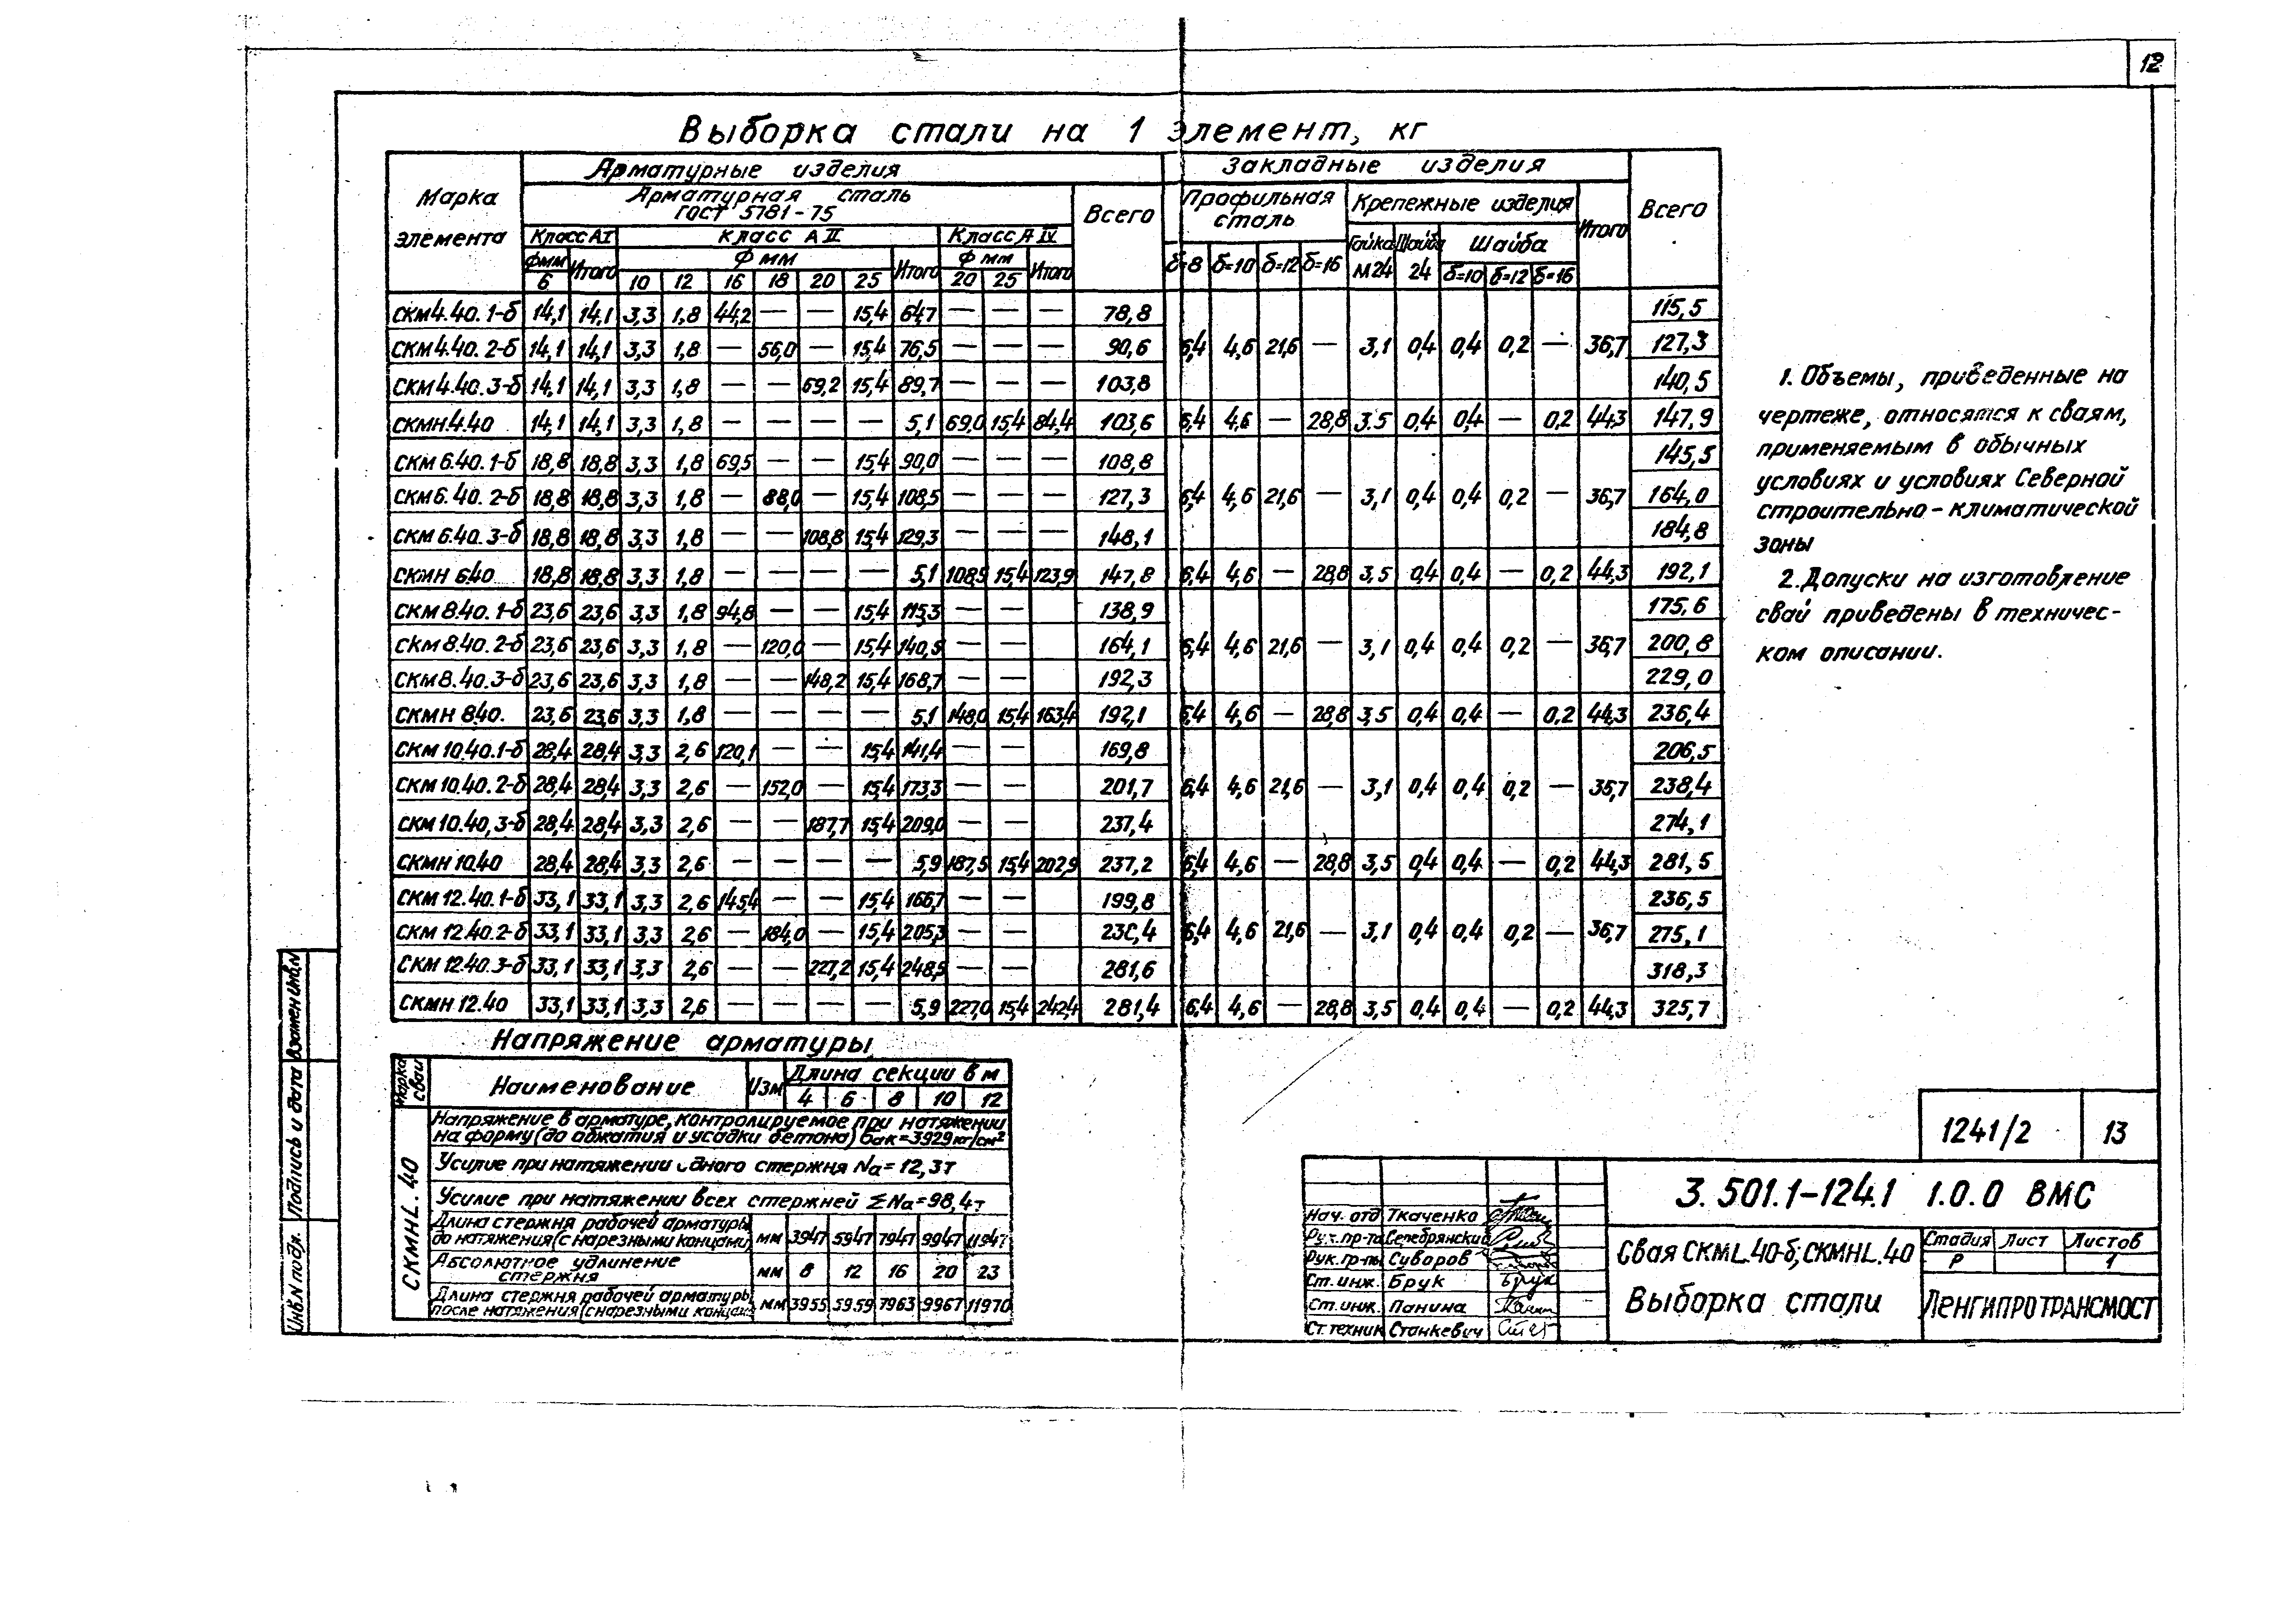 12
Выборка стали на 1 элемент, кг
Марка элемента
Арматурные изделия
Закладные изделия
Всего
Арматурная сталь
ГОСТ 5781-75
Всего
Профильная сталь
Крепежные изделия
Итого
Класс АI
Класс АII
Класс АIV
Гайка М24
Шайба 24
Шайба
Фмм
Итого
Ф мм
Итого
Ф мм
Итого
б=8 б=10 б=12 б=16
б=10 б=12 б=16
6 10 12 16 18 20 25 20 25
СКМ4.40.1-б 14,1 14,1 3,3 1,8 44,2 — — 15,4 64,7 — — — 78,8 115,5
СКМ4.40.2-б 14,1 14,1 3,3 1,8 — 56,0 — 15,4 76,5 — — — 90,6 6,4 4,6 21,6 — 3,1 0,4 0,4 0,2 — 36,7 127,3
СКМ4.40.3-б 14,1 14,1 3,3 1,8 — — 69,2 15,4 89,7 — — — 103,8 140,5
СКМН.4.40 14,1 14,1 3,3 1,8 — — — — 5,1 69,0 15,4 84,4 103,6 6,4 4,6 — 28,8 3,5 0,4 0,4 — 0,2 44,3 147,9
СКМ 6.40.1-б 18,8 18,8 3,3 1,8 69,5 — — 15,4 90,0 — — — 108,8 145,5
СКМ6.40.2-б 18,8 18,8 3,3 1,8 — 88,0 — 15,4 108,5 — — — 127,3 6,4 4,6 21,6 — 3,1 0,4 0,4 0,2 — 36,7 164,0
СКМ 6.40.3-б 18,8 18,8 3,3 1,8 — — 108,8 15,4 129,3 — — — 148,1 184,8
СКМН 6.40 18,8 18,8 3,3 1,8 — — — — 5,1 108,5 15,4 123,9 147,8 6,4 4,6 — 28,8 3,5 0,4 0,4 — 0,2 44,3 192,1
СКМ 8.40.1-б 23,6 23,6 3,3 1,8 94,8 — — 15,4 115,3 — — 138,9 175,6
СКМ 8.40.2-б 23,6 23,6 3,3 1,8 — 120,0 — 15,4 140,5 — — 164,1 6,4 4,6 21,6 — 3,1 0,4 0,4 0,2 — 36,7 200,8
СКМ8.40.3-б 23,6 23,6 3,3 1,8 — — 148,2 15,4 168,7 — — 192,3 229,0
СКМН 8.40. 23,6 23,6 3,3 1,8 — — — — 5,1 148,0 15,4 163,4 192,1 6,4 4,6 — 28,8 3,5 0,4 0,4 — 0,2 44,3 236,4
СКМ 10.40.1-б 28,4 28,4 3,3 2,6 120,1 — — 15,4 141,4 — — 169,8 206,5
СКМ 10.40.2-б 28,4 28,4 3,3 2,6 — 152,0 — 15,4 173,3 — — 201,7 6,4 4,6 21,6 — 3,1 0,4 0,4 0,2 — 36,7 238,4
СКМ 10.40,3-б 28,4 28,4 3,3 2,6 — — 187,7 15,4 209,0 — — 237,4 274,1
СКМН 10.40 28,4 28,4 3,3 2,6 — — — — 5,9 187,5 15,4 202,9 237,2 6,4 4,6 — 28,8 3,5 0,4 0,4 — 0,2 44,3 281,5
СКМ 12.40.1-б 33,1 33,1 3,3 2,6 145,4 — — 15,4 166,7 — — 199,8 236,5
СКМ 12.40.2-б 33,1 33,1 3,3 2,6 — 184,0 — 15,4 205,3 — — 6,4 4,6 21,6 — 3,1 0,4 0,4 0,2 — 36,7 275,1
СКМ 12.40.3-б 33,1 33,1 3,3 2,6 — — 227,2 15,4 248,5 — — 281,6 318,3
СКМН 12.40 33,1 33,1 3,3 2,6 — — — — 5,9 227,0 15,4 242,4 281,4 6,4 4,6 — 28,8 3,5 0,4 0,4 — 0,2 44,3 325,7
1. Объемы, приведенные на
чертеже, относятся к сваям,
применяемым в обычных
условиях и условиях Северной
строительно-климатической
зоны
2. Допуски на изготовление
свай приведены в техничес-
ком описании.
Напряжение арматуры
Марка сваи
Наименование
Изм
Длина секции в м
4 6 8 10 12
СКМНL.40
Напряжение в арматуре, контролируемое при натяжении
на форму (до обжатия и усадки бетона) бак=3929кг/см²
Усилие при натяжении одного стержня Na=12,3т
Усилие при натяжении всех стержней ΣNa=98,4т
Длина стержня рабочей арматуры
до натяжения (с нарезными концами) мм 3947 5947 7947 9947 11947
Абсолютное удлинение
стержня мм 8 12 16 20 23
Длина стержня рабочей арматуры
после натяжения (с нарезными концам мм 3955 5959 7963 9967 11970
Взамен инв.N
Подпись и дата
Инв.N подл.
1241/2 13
3.501.1-124.1 1.0.0 ВМС
Нач. отд Ткаченко
Рук. пр-та Серебрянский
Рук. гр-пы Суворов
Ст. инж. Брук
Ст. инж. Панина
Ст. техник Станкевич
Свая СКМL.40-б; СКМНL.40
Выборка стали
Стадия Лист Листов
Р 1
ЛЕНГИПРОТРАНСМОСТ